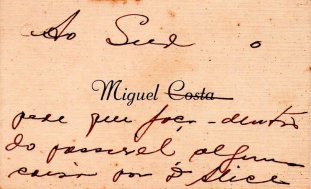 Ao Sud o
Miguel Costa
pede que faça - dentro
do possivel, alguma
coisa por D Alice